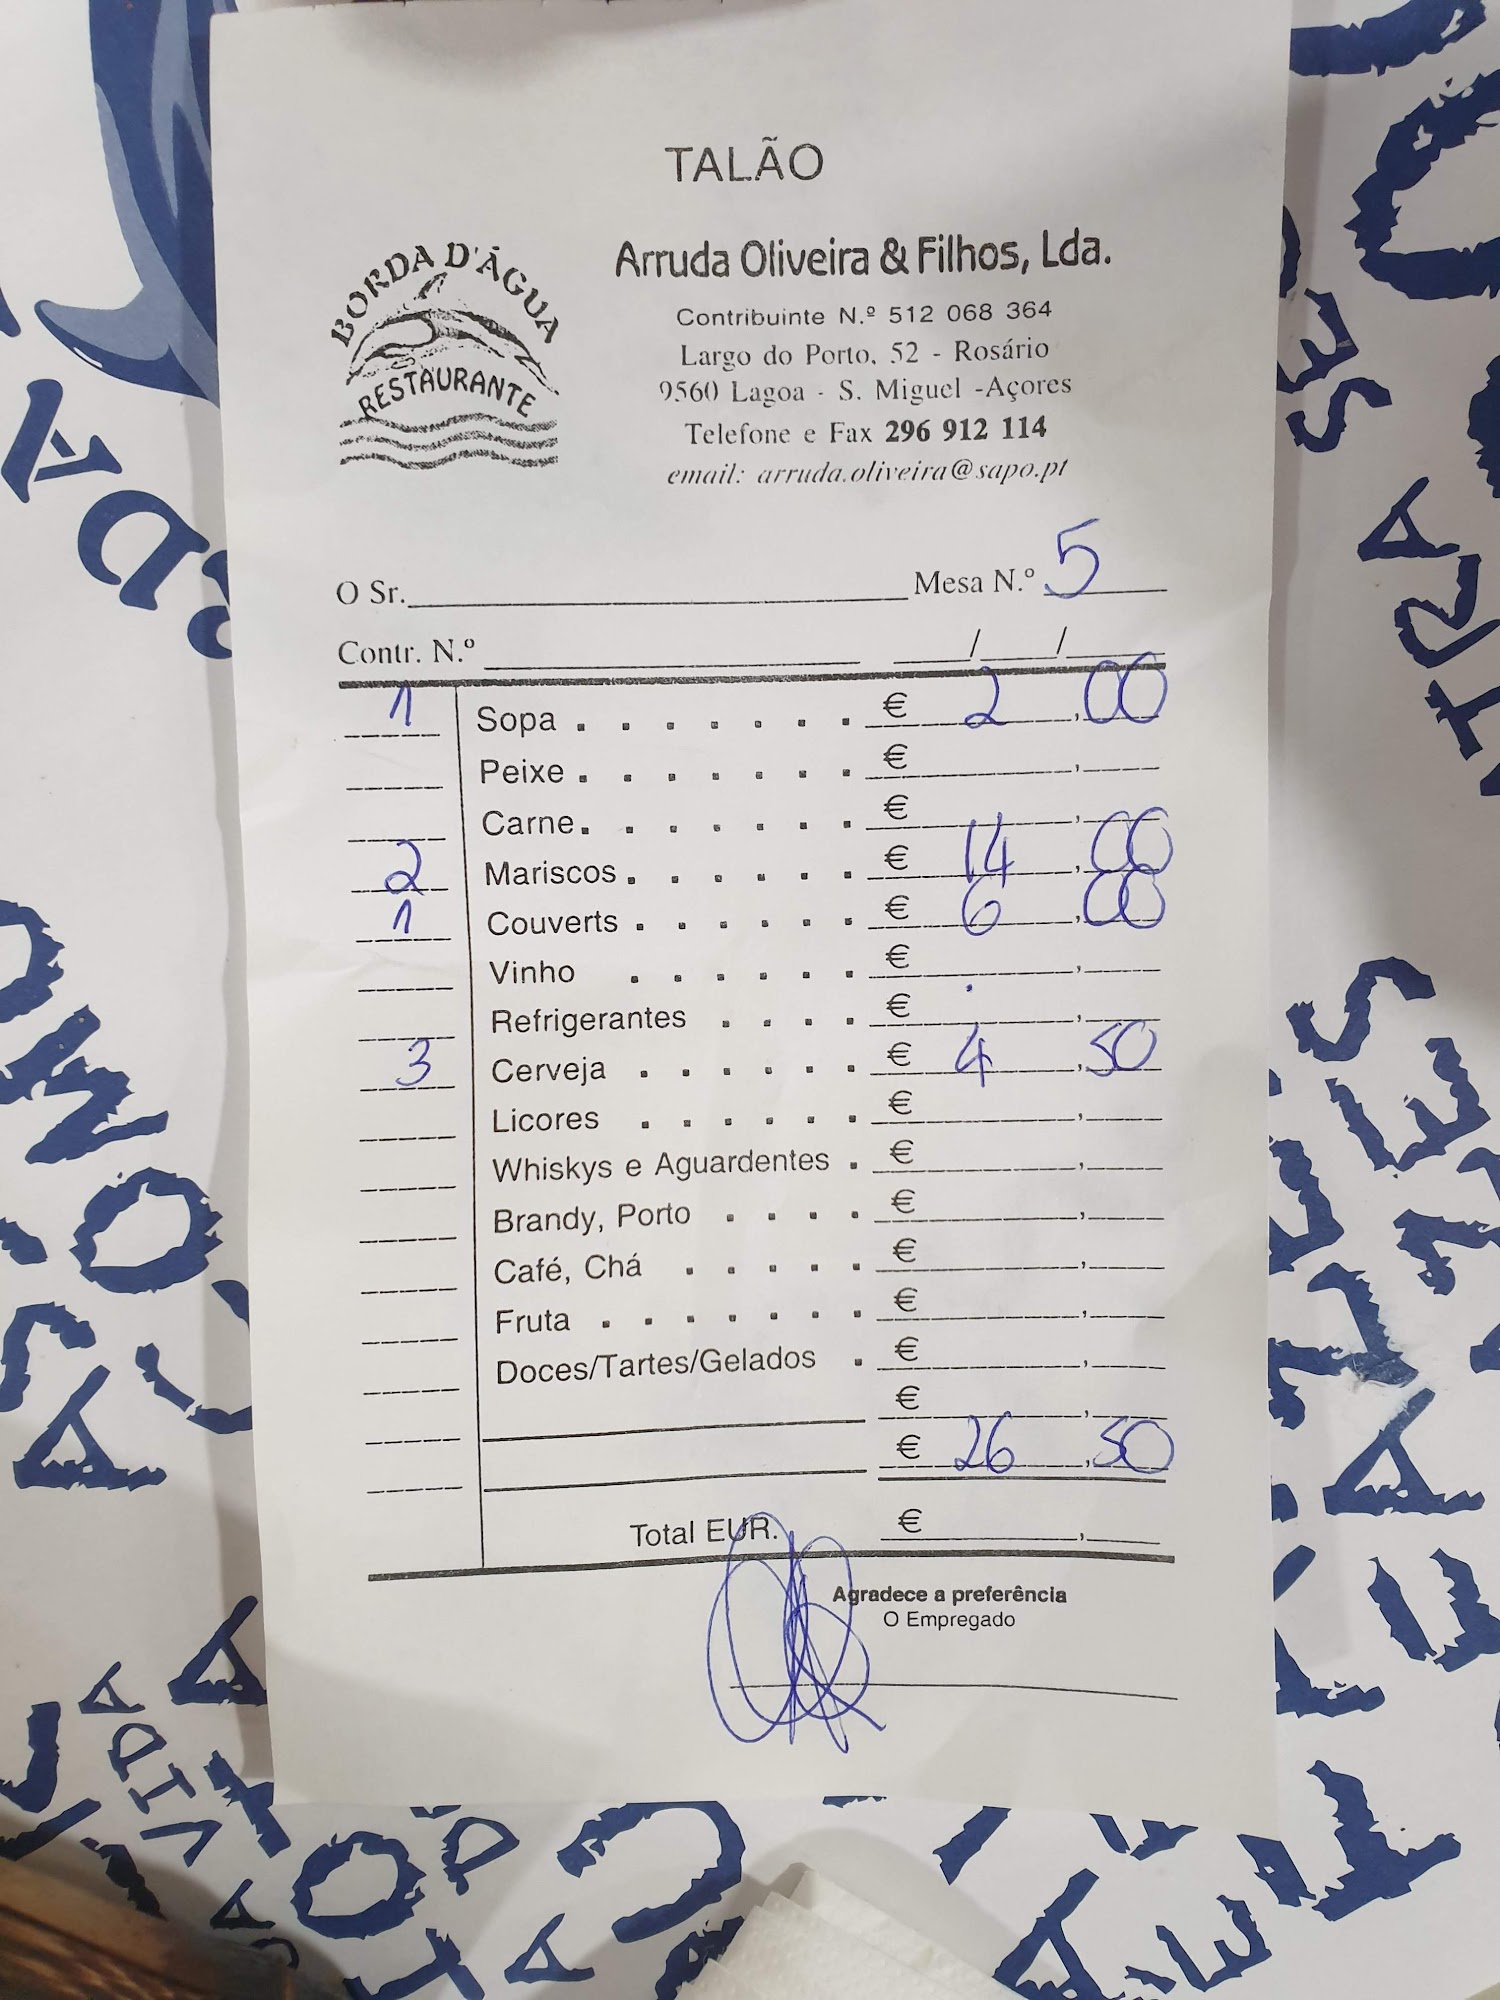 TALÃO
BORDA D'ÁGUA
RESTAURANTE
Arruda Oliveira & Filhos, Lda.
Contribuinte N.º 512 068 364
Largo do Porto, 52 - Rosário
9560 Lagoa - S. Miguel -Açores
Telefone e Fax 296 912 114
email: arruda.oliveira@sapo.pt
O Sr. Mesa N.º 5
Contr. N.º / /
1 Sopa . . . . . . . € 2,00
Peixe . . . . . . . € ,
Carne . . . . . . . € ,
2 Mariscos . . . . . . € 14,00
1 Couverts . . . . . . € 6,00
Vinho . . . . . . € ,
Refrigerantes . . . . € ,
3 Cerveja . . . . . . € 4,50
Licores . . . . . . € ,
Whiskys e Aguardentes . € ,
Brandy, Porto . . . . € ,
Café, Chá . . . . . € ,
Fruta . . . . . . . € ,
Doces/Tartes/Gelados . € ,
€ ,
€ 26,50
Total EUR. € ,
Agradece a preferência
O Empregado
VIDA